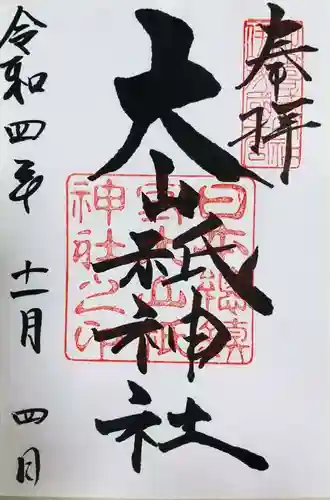 奉拝
大山祇神社
日本總鎮
守大山祇
神社之印
令和四年 十一月 四日